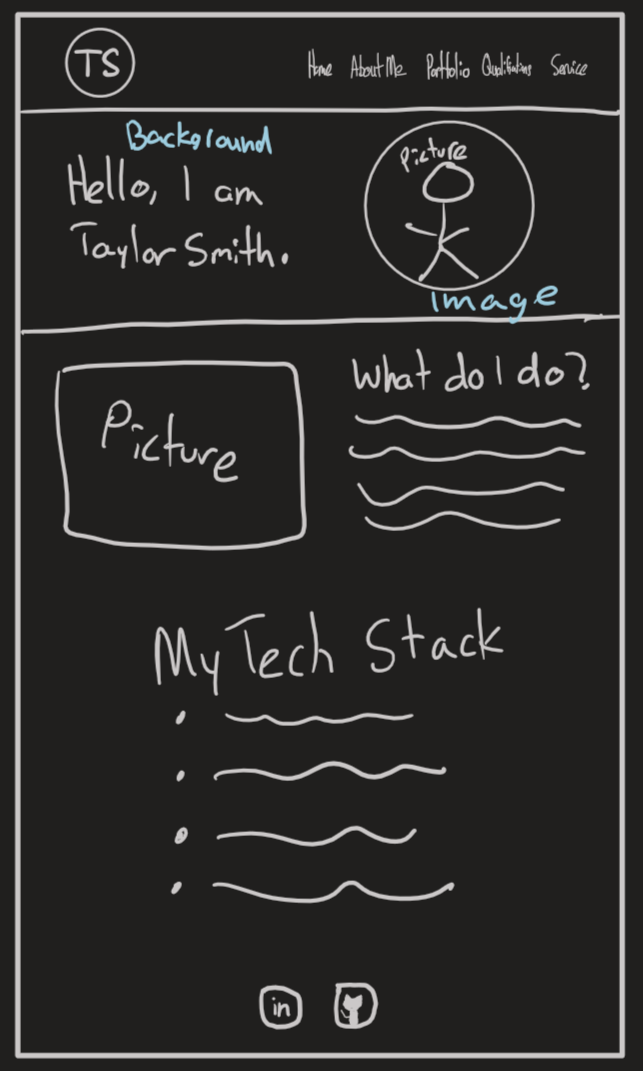 TS
Home About Me Portfolio Qualifications Service
Background
Hello, I am
Taylor Smith.
Picture
Image
Picture
What do I do?
My Tech Stack
in